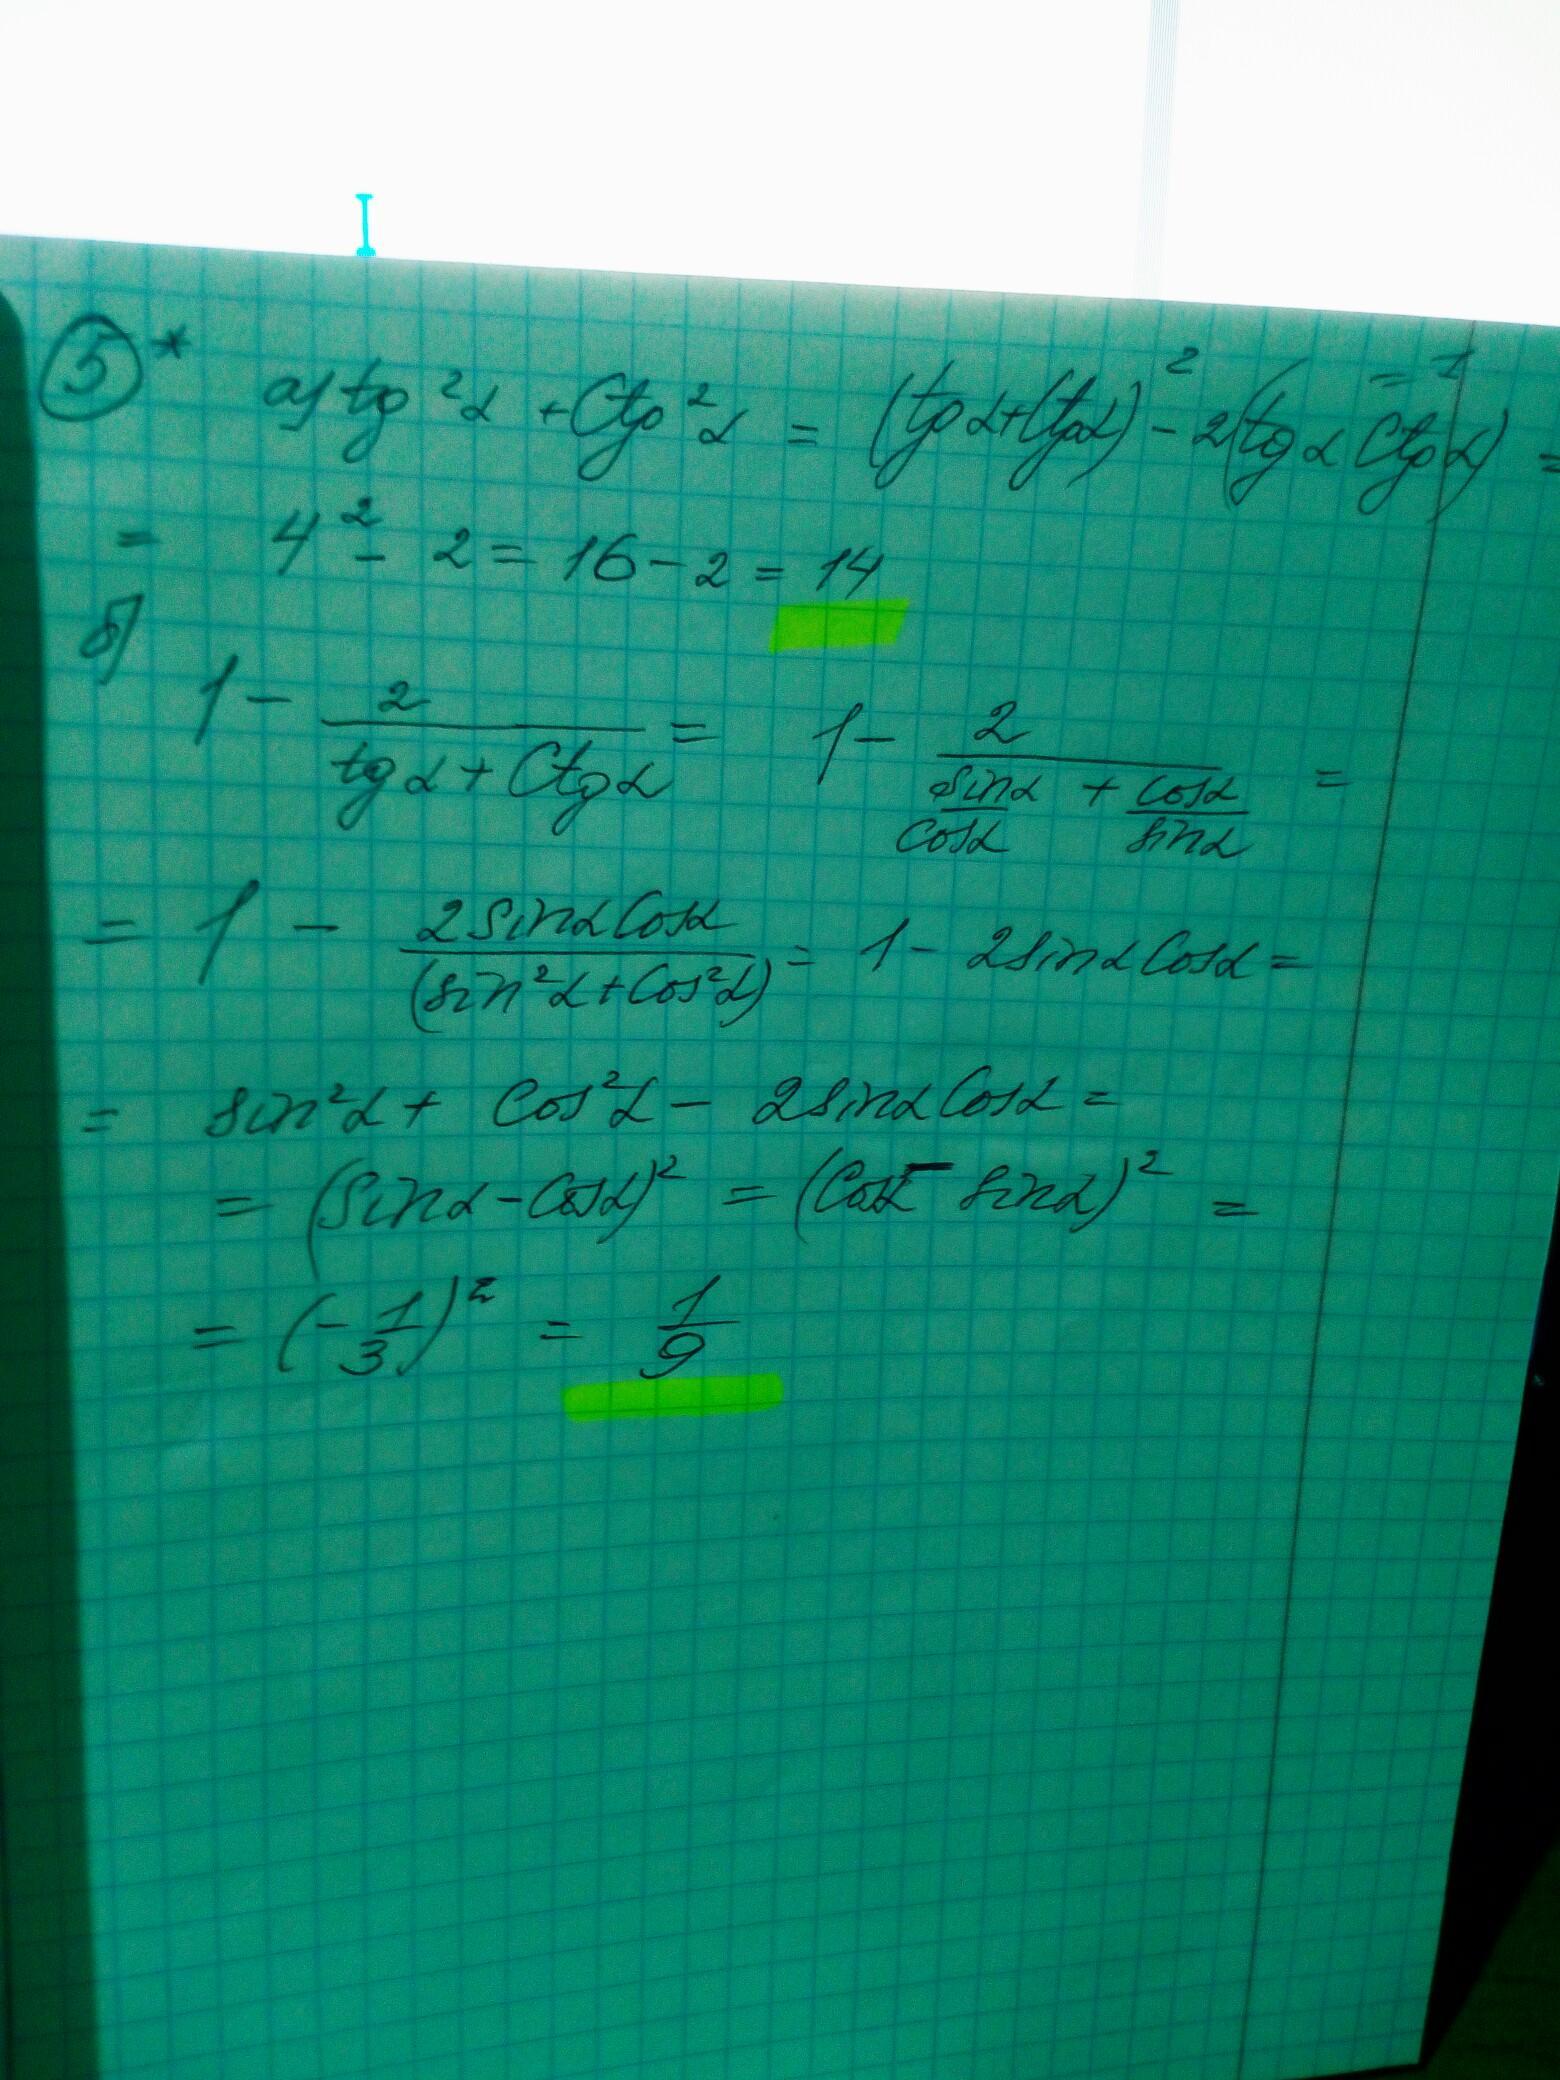 5* a) tg²α + Ctg²α = (tgα+Ctgα)² - 2(tgα Ctgα) = =1
= 4² - 2 = 16 - 2 = 14
б)
1 - 2/(tgα + Ctgα) = 1 - 2/(sinα/cosα + cosα/sinα) =
= 1 - 2sinα Cosα/(sin²α + Cos²α) = 1 - 2sinα Cosα =
= sin²α + Cos²α - 2sinα Cosα =
= (sinα - Cosα)² = (Cosα - sinα)² =
= (-1/3)² = 1/9